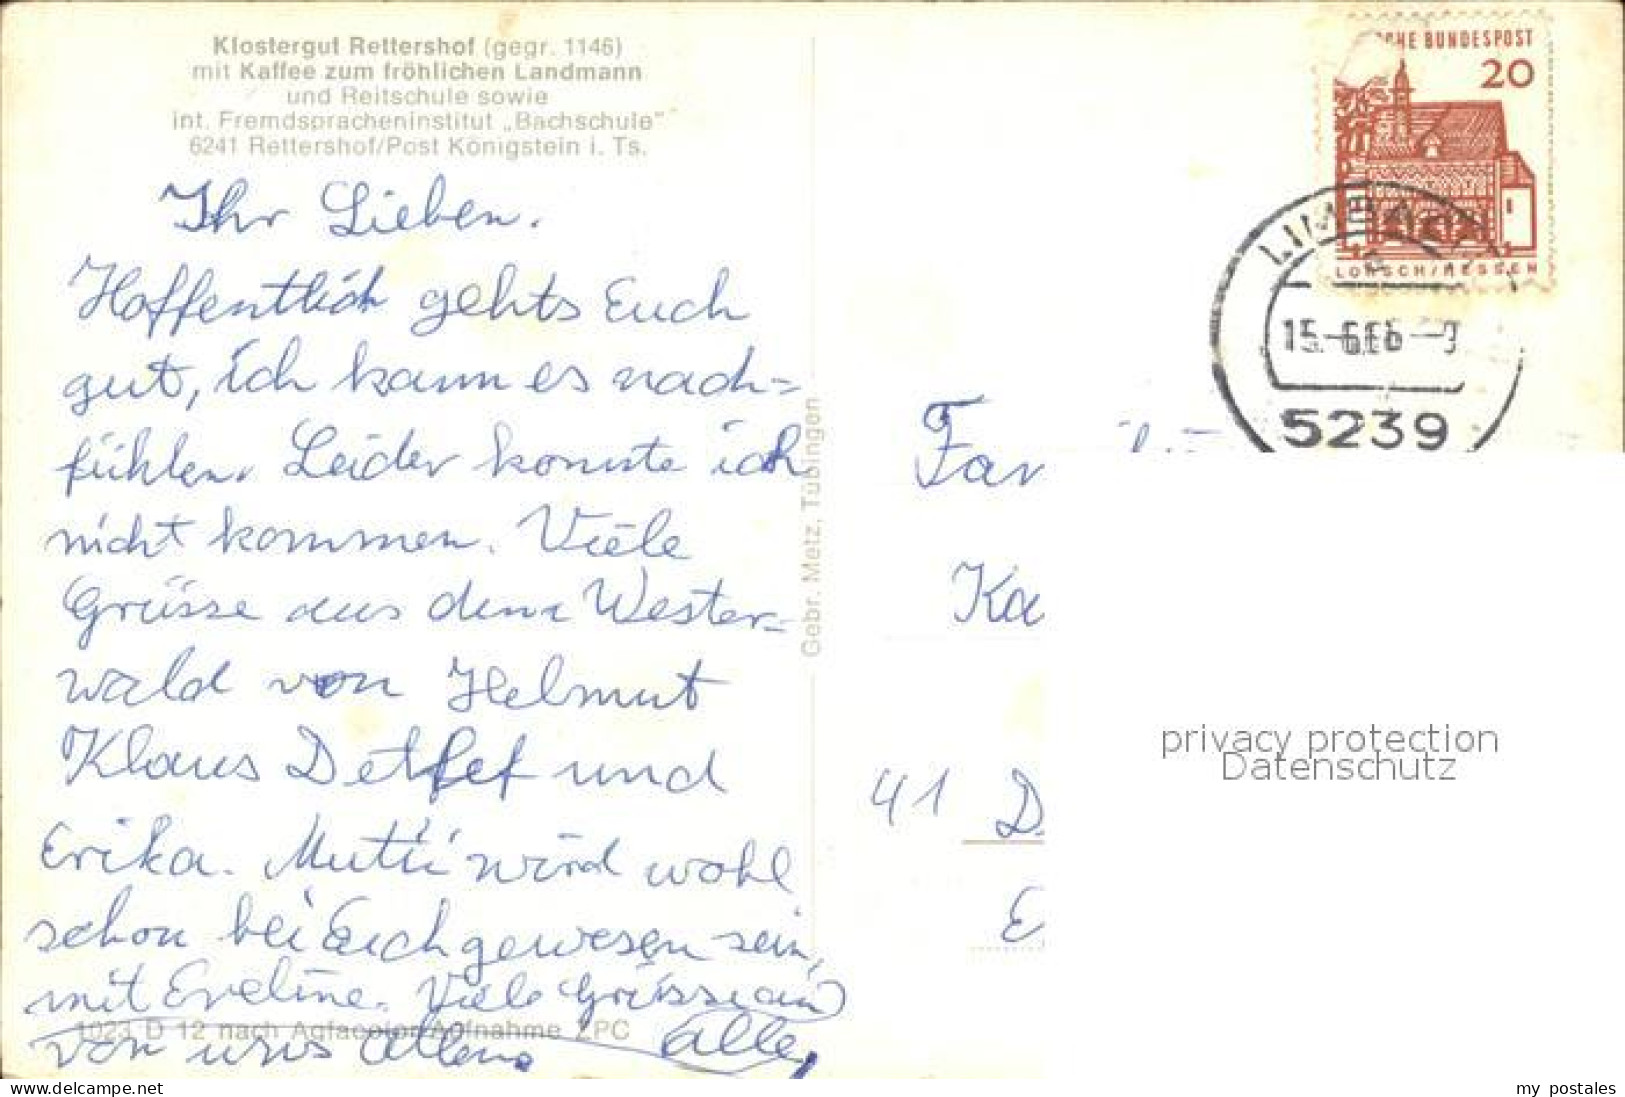 Klostergut Rettershof (gegr. 1146)
mit Kaffee zum fröhlichen Landmann
und Reitschule sowie
int. Fremdspracheninstitut „Bachschule"
6241 Rettershof/Post Königstein i. Ts.
CHE BUNDESPOST
20
LORSCH/HESSEN
5239
Ihr Lieben.
Hoffentlich gehts Euch
gut, ich kann es nach=
fühlen. Leider konnte ich
nicht kommen. Viele
Grüsse aus dem Wester=
wald von Helmut
Klaus Detlef und
Erika. Mutti wird wohl
schon bei Euch gewesen sein,
mit Eveline. Viele Grüsse an
alle,
von uns allen.
1023 D 12 nach Agfacolor-Aufnahme ZPC
Gebr. Metz, Tübingen
Fam
Ka
41 D
E
privacy protection
Datenschutz
my postales